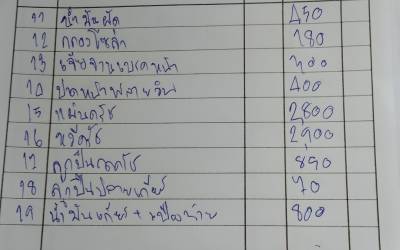 11 น้ำมันผัด 450
12 กลองโซล่า 180
13 เจียจานเบรคหน้า 400
14 ปาดหน้าพลายวิน 400
15 แผ่นครัช 2,800
16 หวีครัช 2,900
17 ลูกปืนกดครัช 890
18 ลูกปืนปลายเกียร์ 70
19 น้ำมันเกียร์ + เฟืองท้าย 800